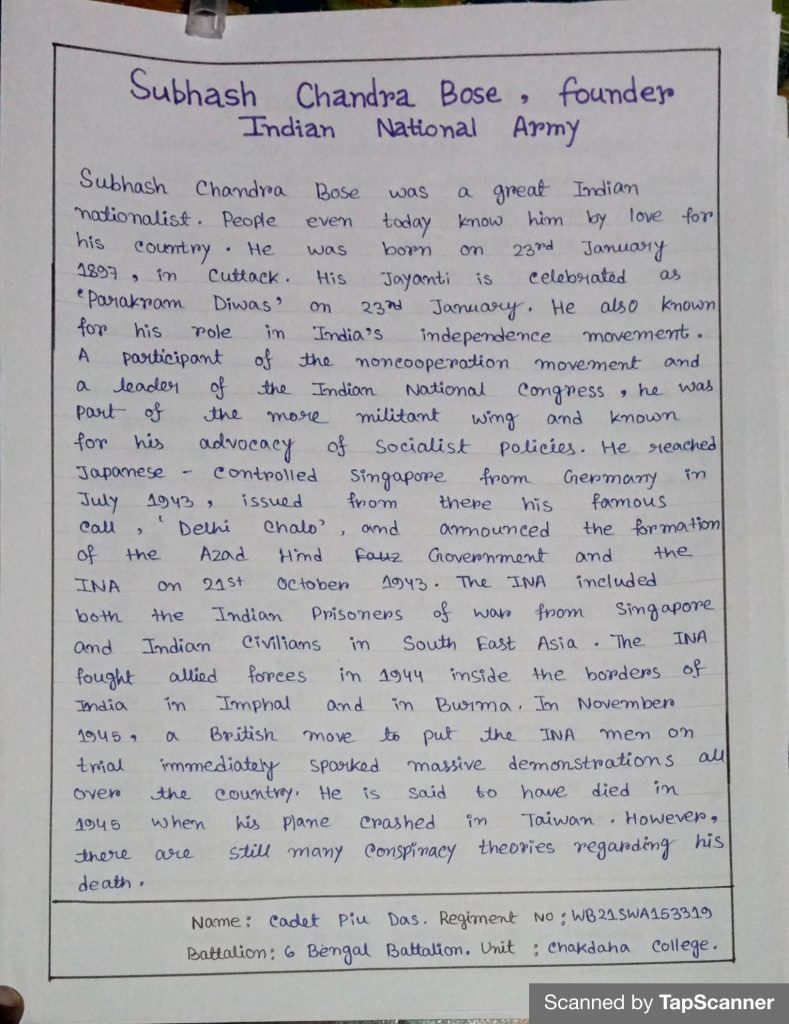 Subhash Chandra Bose, founder
Indian National Army
Subhash Chandra Bose was a great Indian
nationalist. People even today know him by love for
his country. He was born on 23rd January
1897, in Cuttack. His Jayanti is celebrated as
'Parakram Diwas' on 23rd January. He also known
for his role in India's independence movement.
A participant of the noncooperation movement and
a leader of the Indian National Congress, he was
part of the more militant wing and known
for his advocacy of socialist policies. He reached
Japanese - controlled Singapore from Germany in
July 1943, issued from there his famous
call, 'Delhi Chalo', and announced the formation
of the Azad Hind Fauz Government and the
INA on 21st October 1943. The INA included
both the Indian Prisoners of war from Singapore
and Indian Civilians in South East Asia. The INA
fought allied forces in 1944 inside the borders of
India in Imphal and in Burma. In November
1945, a British move to put the INA men on
trial immediately sparked massive demonstrations all
over the country. He is said to have died in
1945 when his plane crashed in Taiwan. However,
there are still many conspiracy theories regarding his
death.
Name: Cadet Piu Das. Regiment No: WB21SWA153319
Battalion: 6 Bengal Battalion. Unit : Chakdaha College.
Scanned by TapScanner